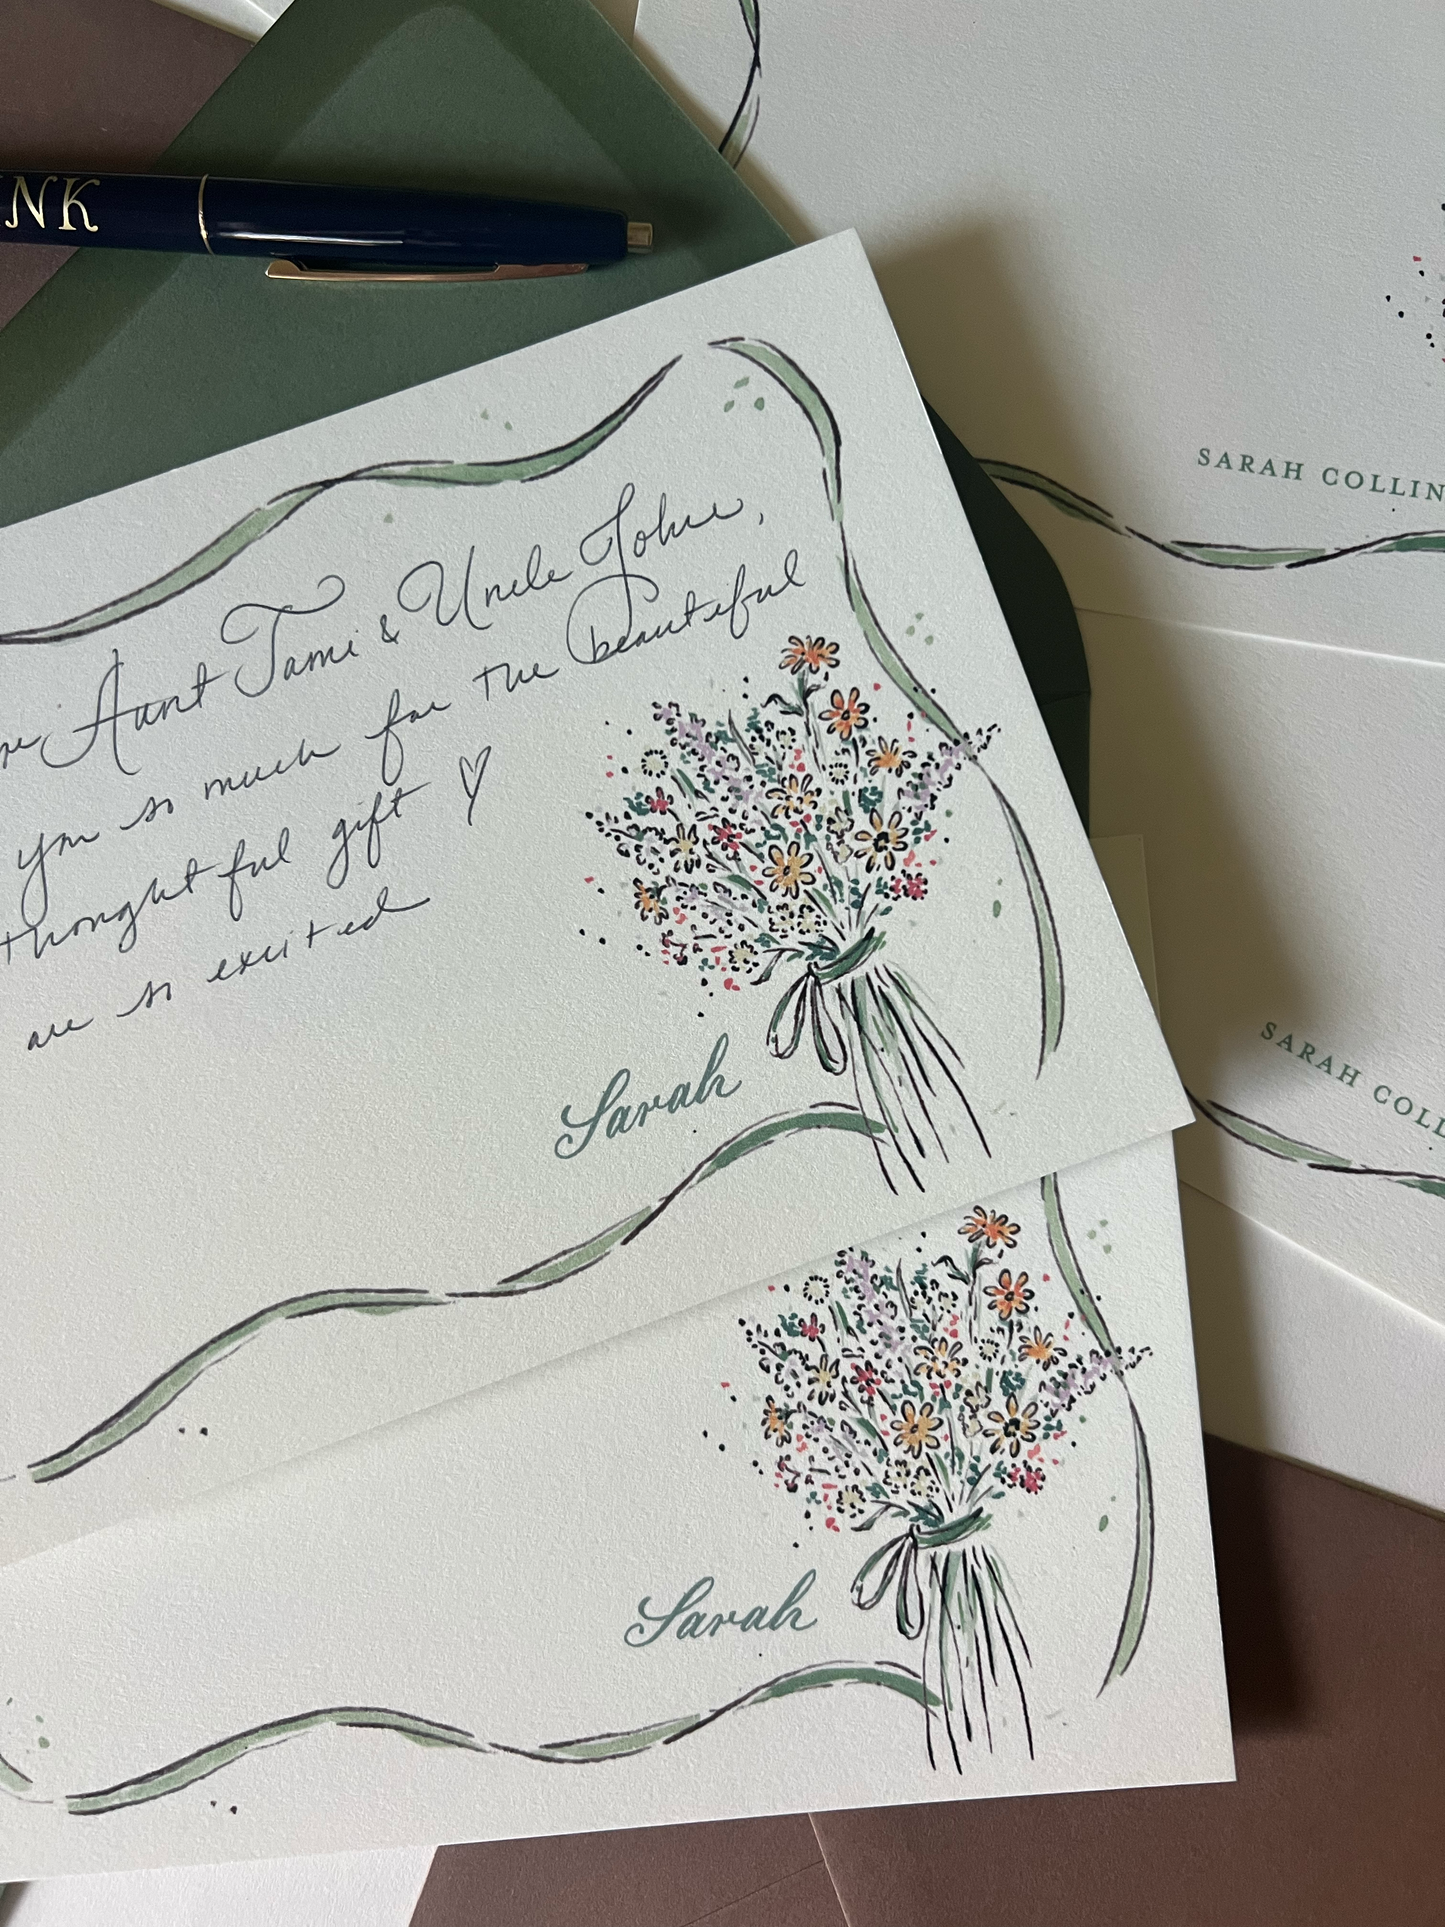 NK
SARAH COLLIN
Aunt Tami & Uncle John,
you so much for the beautiful
thoughtful gift ♡
are so excited
Sarah
SARAH COLL
Sarah